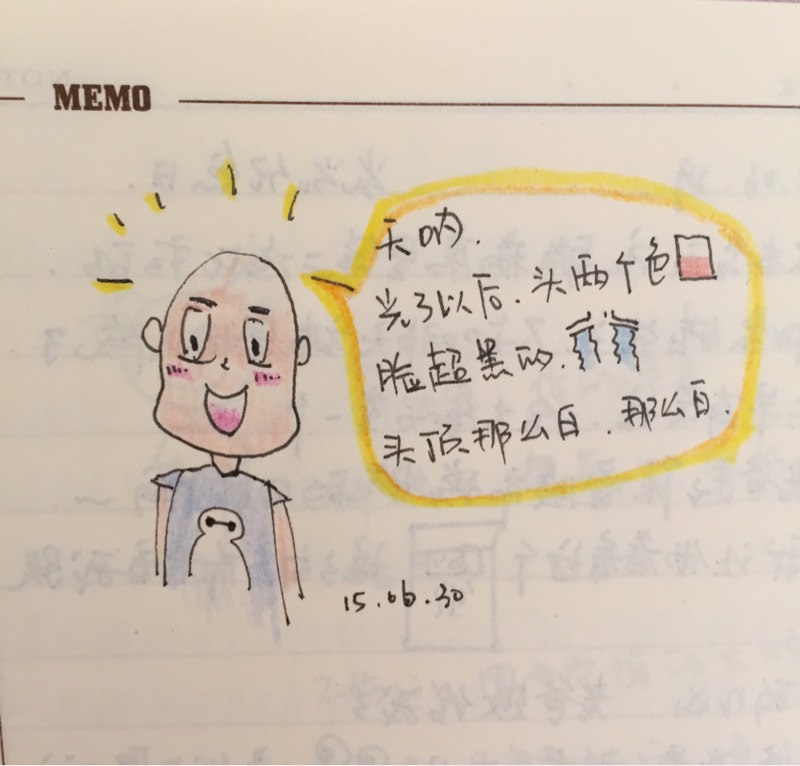 MEMO
天呐.
光了以后.头两个色
脸超黑的.
头顶那么白.那么白.
15.06.30